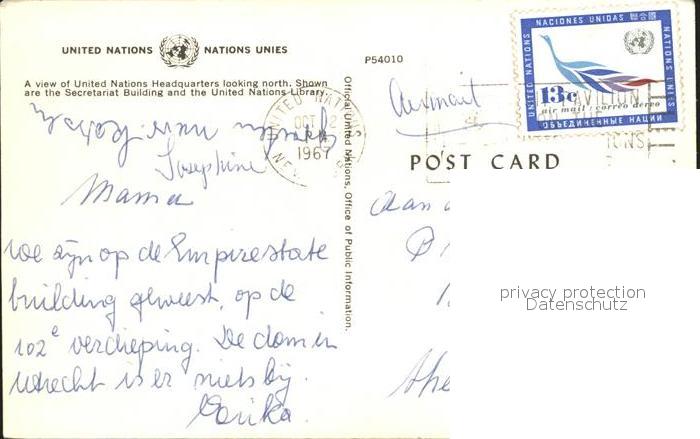 UNITED NATIONS NATIONS UNIES
A view of United Nations Headquarters looking north. Shown
are the Secretariat Building and the United Nations Library.
Josephine
Mama
we zijn op de Empirestate
building geweest, op de
102e verdieping. De dom in
Utrecht is er niets bij.
Official United Nations, Office of Public Information.
UNITED NATIONS
OCT
1967
NEW
P54010
Airmail
NACIONES UNIDAS 聯合國
UNITED NATIONS
NATIONS UNIES
13c
air mail / correo aereo
ОБЪЕДИНЕННЫЕ НАЦИИ
POST CARD
Aan
privacy protection
Datenschutz